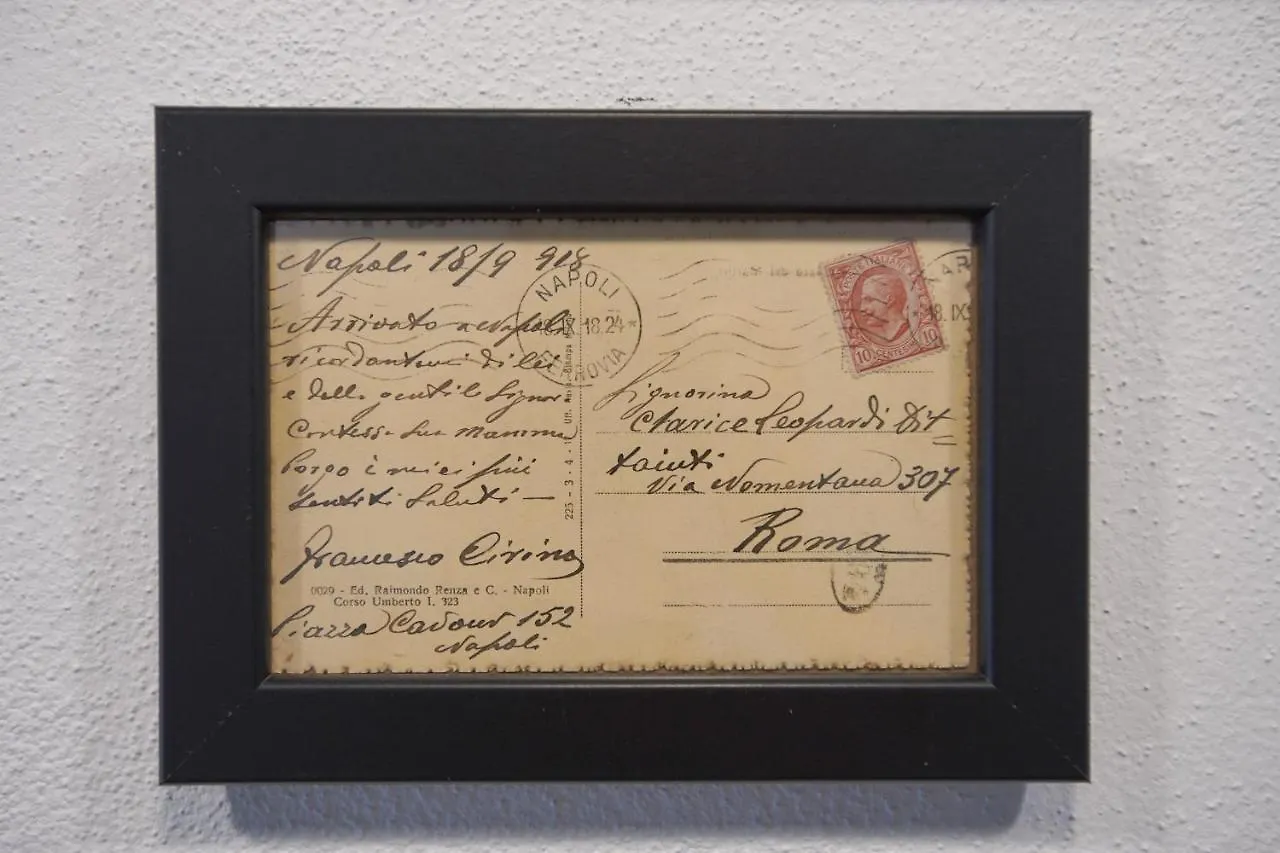 Napoli 18/9 918
Arrivato a Napoli
ricordandomi di lei
e della gentile Signor
Contessa Sua Mamma
Porgo i miei più
sentiti Saluti —
Francesco Cirino
0029 - Ed. Raimondo Renza e C. - Napoli
Corso Umberto I. 323
Piazza Cavour 152
Napoli
NAPOLI
18.24
FERROVIA
225 - 3 - 4 - 1
POSTE ITALIANE
10 CENTESIMI 10
18. IX
Signorina
Clarice Leopardi Dit=
taiuti
Via Nomentana 307
Roma